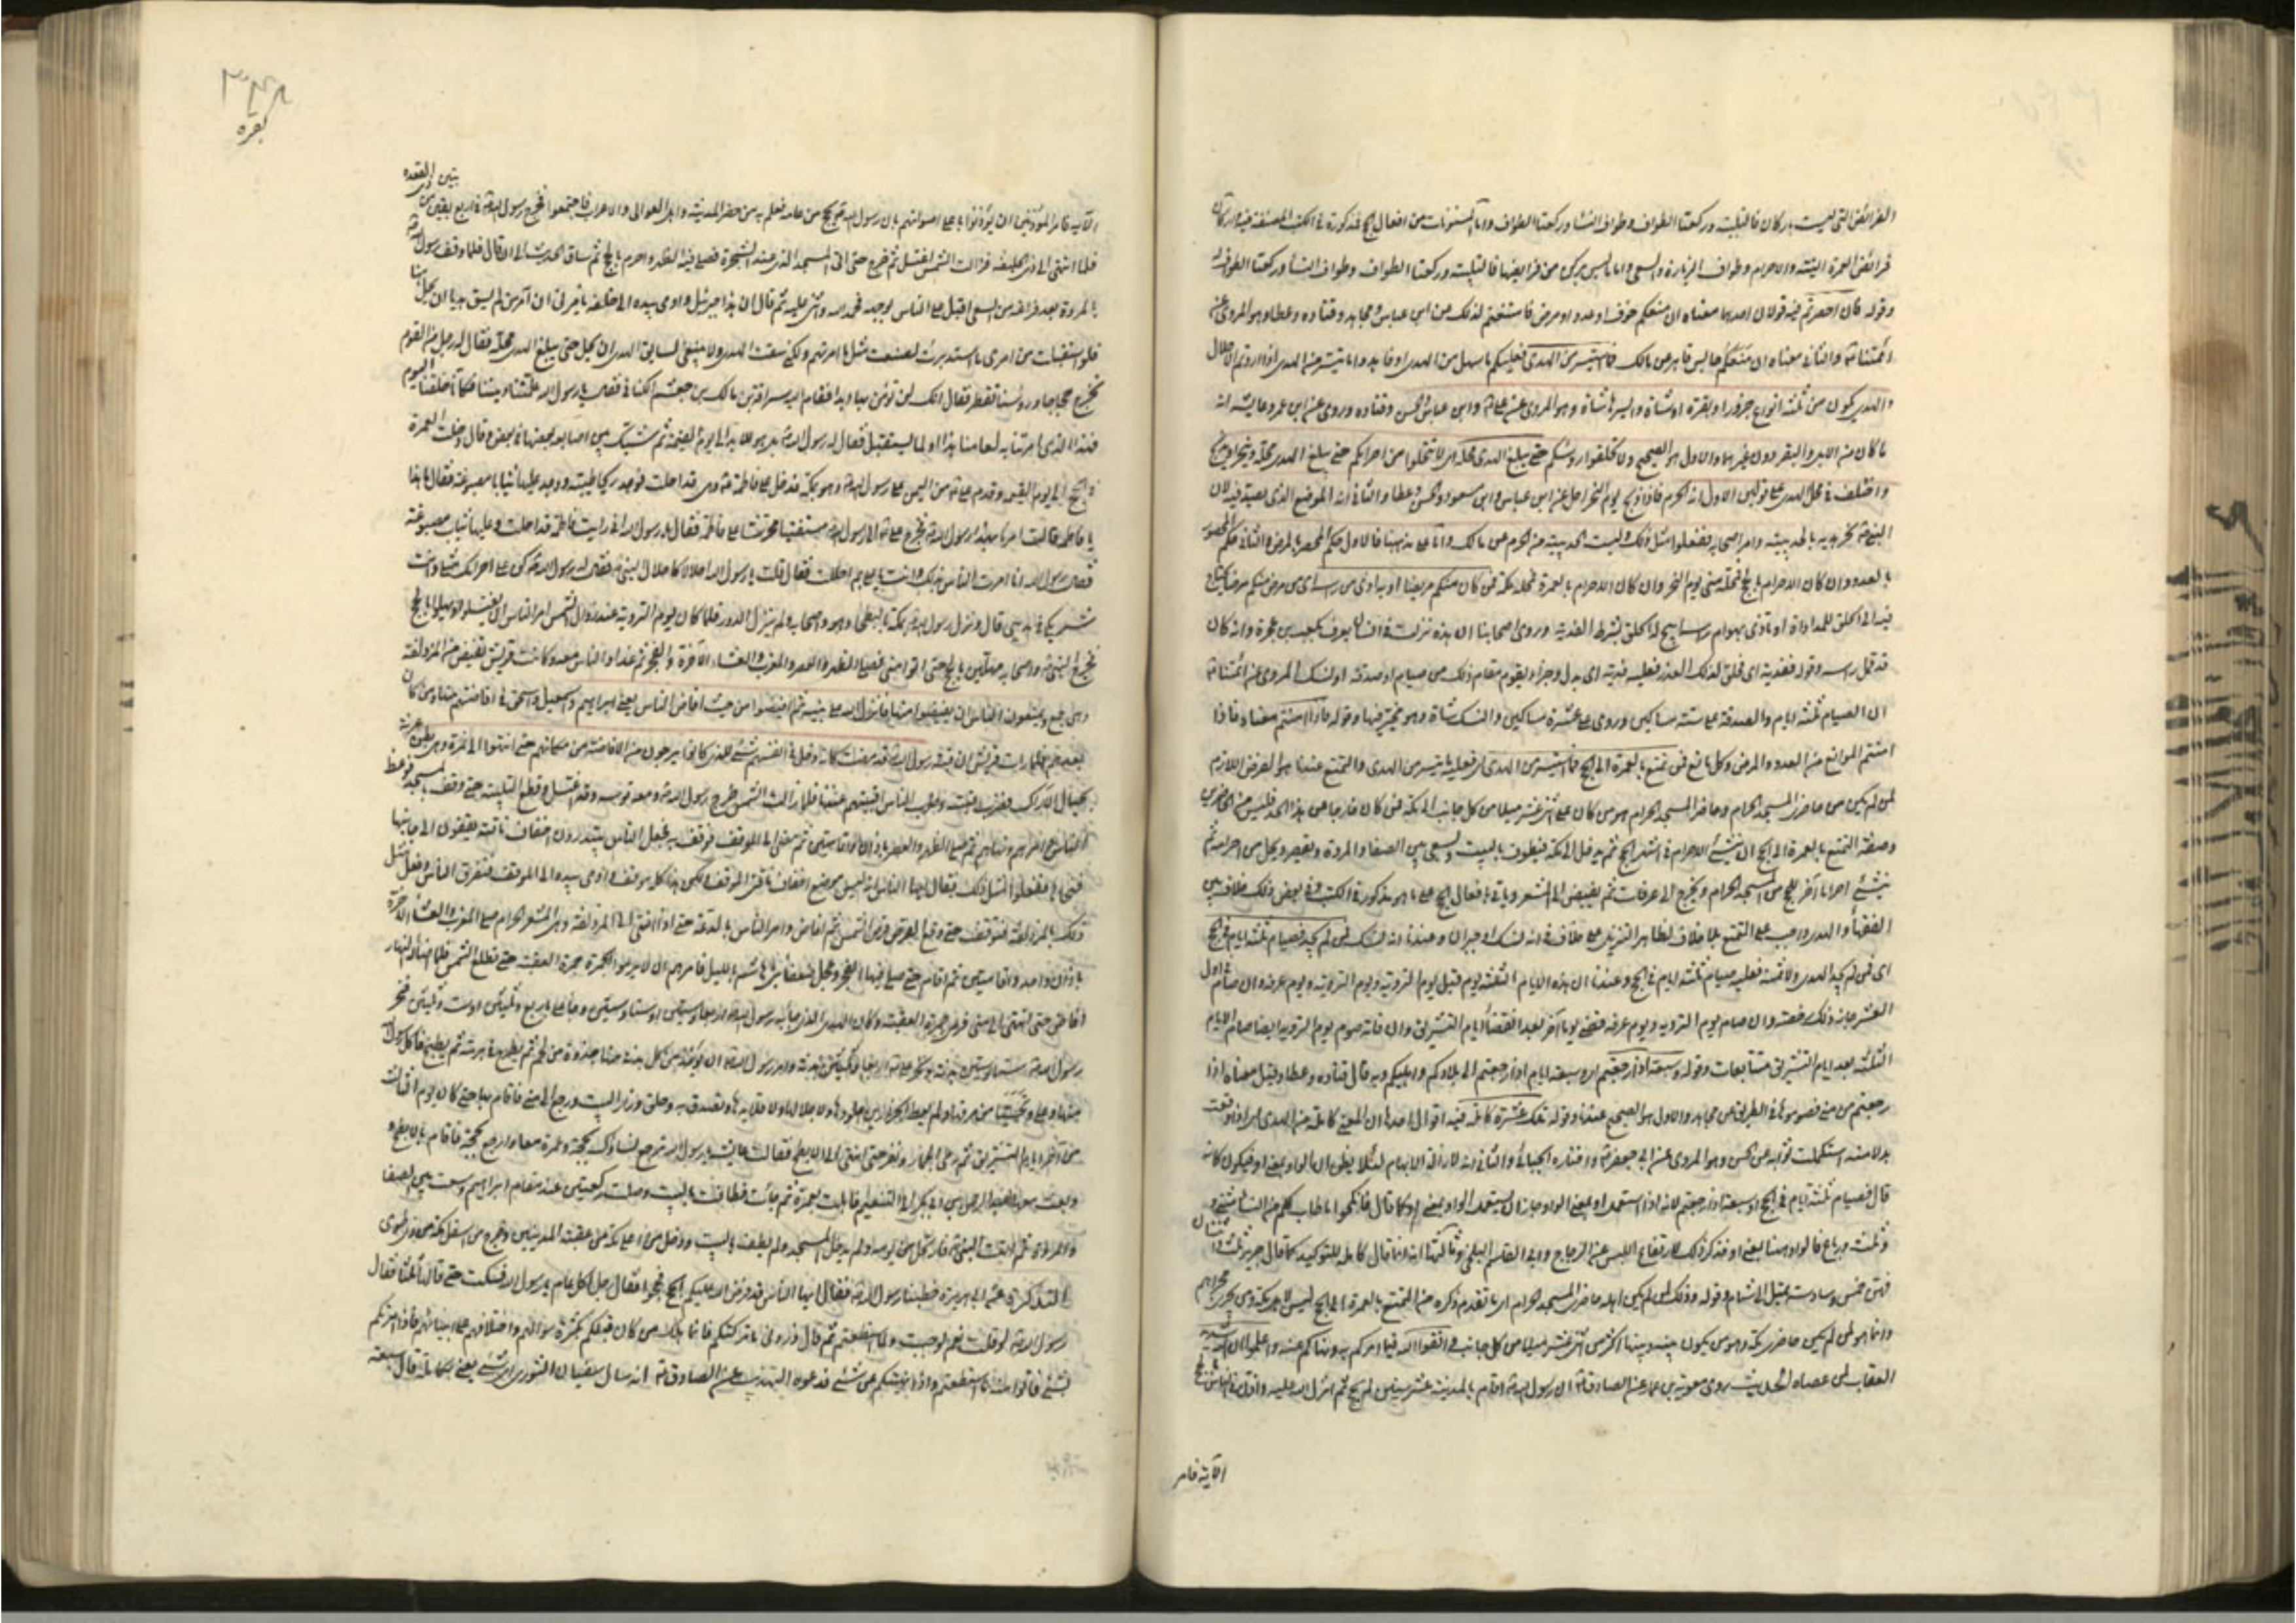 الفرائض التي ليست باركان فالتلبية وركعتا الطواف وطواف النساء وركعتا الطواف واما المسنونات من افعال الحج فمذكورة في الكتب المصنفة فيه واركان
فرائض العمرة النية والاحرام وطواف الزيارة والسعي واما ما ليس بركن من فرائضها فالتلبية وركعتا الطواف وطواف النساء وركعتا الطواف له
وقوله فان احصرتم فيه قولان احدهما معناه ان منعكم خوف او عدو او مرض فامتنعتم لذلك عن ابن عباس ومجاهد وقتادة وعطا وهو المروي عن
ائمتنا والثاني معناه ان منعكم حابس قاهر عن مالك فما استيسر من الهدى فعليكم ما سهل من الهدى او فاهدوا ما تيسر من الهدى اذا اردتم الاحلال
والهدى يكون من ثلثة انواع جزور او بقرة او شاة وايسرها شاة وهو المروي عن علي وابن عباس والحسن وقتاده وروى عن ابن عمر وعايشه انه
ما كان من الابل والبقر دون غيرهما والاول هو الصحيح ولا تحلقوا رؤسكم حتى يبلغ الهدى محله اى لا تتحللوا من احرامكم حتى يبلغ الهدى محله وينحر او يذبح
واختلف في محل الهدى على قولين الاول انه الحرم فاذا ذبح يوم النحر احل عن ابن عباس وابن مسعود والحسن وعطا والثاني انه الموضع الذى يصد فيه لان
النبي نحر هديه بالحديبية وامر اصحابه ففعلوا مثل ذلك وليست الحديبية من الحرم عن مالك واما على مذهبنا فالاول حكم المحصر بالمرض والثاني حكم المحصور
بالعدو وان كان الاحرام بالحج فمحله منى يوم النحر وان كان الاحرام بالعمرة فمحله مكة فمن كان منكم مريضا او به اذى من راسه اى من مرض منكم مرضا يحتاج
فيه الى الحلق للمداواة او تاذى بهوام راسه ابيح له الحلق بشرط الفدية وروى اصحابنا ان هذه نزلت في انسان يعرف بكعب بن عجرة وانه كان
قد قمل راسه وقوله ففدية اى فحلق لذلك العذر فعليه فدية اى بدل وجزاء يقوم مقام ذلك من صيام او صدقة او نسك المروي عن ائمتنا
ان الصيام ثلثة ايام والصدقة على ستة مساكين وروى على عشرة مساكين والنسك شاة وهو مخير فيها وقوله فاذا امنتم معناه فاذا
امنتم الموانع من العدو والمرض وكل مانع فمن تمتع بالعمرة الى الحج فما استيسر من الهدى اى فعليه ما تيسر من الهدى والتمتع عندنا هو الفرض اللازم
لمن لم يكن من حاضرى المسجد الحرام وحاضر المسجد الحرام هو من كان على اثنى عشر ميلا من كل جانب الى مكة فمن كان خارجا عن هذا الحد فليس من الحاضرين
وصفة التمتع بالعمرة الى الحج ان ينشئ الاحرام في اشهر الحج ثم يدخل الى مكة فيطوف بالبيت ويسعى بين الصفا والمروة ويقصر ويحل من احرامه ثم
ينشئ احراما آخر للحج من المسجد الحرام ويخرج الى عرفات ثم يفيض الى المشعر وياتي بافعال الحج على ما هو مذكور في الكتب وفي بعض ذلك خلاف بين
الفقهاء والهدى واجب على التمتع بلا خلاف لظاهر التنزيل على خلاف في انه نسك او جبران وعندنا انه نسك فمن لم يجد فصيام ثلثة ايام في الحج
اى فمن لم يجد الهدى ولا ثمنه فعليه صيام ثلثة ايام في الحج وعندنا ان هذه الايام الثلثة يوم قبل يوم التروية ويوم التروية ويوم عرفه وان صام اول
العشر جاز ذلك رخصة وان صام يوم التروية ويوم عرفه قضى يوما آخر بعد انقضاء ايام التشريق وان فاته صوم يوم التروية ايضا صام الايام
الثلثة بعد ايام التشريق متتابعات وقوله وسبعة اذا رجعتم اى وسبعة ايام اذا رجعتم الى بلادكم واهليكم وبه قال قتاده وعطا وقيل معناه اذا
رجعتم من منى فصوموها في الطريق عن مجاهد والاول هو الصحيح عندنا وقوله تلك عشرة كاملة فيه اقوال احدها ان المعنى كاملة من الهدى اى اذا وقعت
بدلا منه استكملت ثوابه عن الحسن وهو المروي عن ابي جعفر واختاره الجبائي والثاني انه لازالة الابهام لئلا يظن ان الواو بمعنى او فيكون كانه
قال فصيام ثلثة ايام في الحج او سبعة اذا رجعتم لانه اذا استعمل او بمعنى الواو جاز ان يستعمل الواو بمعنى او كما قال فانكحوا ما طاب لكم من النساء مثنى و
وثلث ورباع فالواو ههنا بمعنى او فذكر ذلك لارتفاع اللبس عن الزجاج وابى القاسم البلخى وثالثها انه انما قال كاملة للتوكيد كما قال جرير ثلث واثنتان
فهن خمس وسادسة تميل الى شمام وقوله وذلك لمن لم يكن اهله حاضرى المسجد الحرام اى ما تقدم ذكره من التمتع بالعمرة الى الحج ليس لاهل مكة ومن يجرى مجراهم
وانما هو لمن لم يكن من حاضرى مكة وهو من يكون بينه وبينها اكثر من اثنى عشر ميلا من كل جانب واتقوا الله فيما امركم به ونهاكم عنه واعلموا ان الله شديد
العقاب لمن عصاه الحديث روى معوية بن عمار عن الصادق ان رسول الله اقام بالمدينة عشر سنين لم يحج ثم انزل الله عليه واذن في الناس بالحج
الآية فامر
٣٤٨
بقره
الآية فامر المؤذنين ان يؤذنوا باعلى اصواتهم بان رسول الله يحج من عامه فعلم به من حضر المدينة واهل العوالى والاعراب فاجتمعوا فخرج رسول الله في اربع بقين من ذى القعده
فلما انتهى الى ذى الحليفه فزالت الشمس اغتسل ثم خرج حتى اتى المسجد الذى عند الشجرة فصلى فيه الظهر واحرم بالحج ثم ساق الحديث الى ان قال فلما وقف رسول الله
بالمروة بعد فراغه من السعى اقبل على الناس بوجهه فحمد الله واثنى عليه ثم قال ان هذا جبرئيل واومى بيده الى خلفه يامرنى ان آمر من لم يسق هديا ان يحل
فلو استقبلت من امرى ما استدبرت لصنعت مثل ما امرتكم ولكنى سقت الهدى ولا ينبغى لسايق الهدى ان يحل حتى يبلغ الهدى محله فقال له رجل من القوم
نخرج حجاجا ورؤسنا تقطر فقال انك لن تؤمن بها ابدا فقام اليه سراقة بن مالك بن جعشم الكنانى فقال يا رسول الله علمتنا ديننا فكأنا خلقنا اليوم
فهذا الذى امرتنا به لعامنا هذا او لما يستقبل فقال له رسول الله بل هو للابد الى يوم القيمة ثم شبك بين اصابعه بعضها في بعض وقال دخلت العمرة
في الحج الى يوم القيمه وقدم على من اليمن على رسول الله وهو بمكة فدخل على فاطمة وهى قد احلت فوجد ريحا طيبة ووجد عليها ثيابا مصبوغة فقال ما هذا
يا فاطمة فقالت امرنا بهذا رسول الله فخرج على الى رسول الله مستفتيا محرشا على فاطمة فقال يا رسول الله انى رايت فاطمة قد احلت وعليها ثياب مصبوغة
فقال رسول الله انا امرت الناس بذلك وانت يا على بم اهللت فقال قلت يا رسول الله اهلالا كاهلال النبي فقال له رسول الله كن على احرامك مثلى وانت
شريكى في هديى قال ونزل رسول الله بمكة بالبطحاء هو واصحابه ولم ينزل الدور فلما كان يوم التروية عند زوال الشمس امر الناس ان يغتسلوا ويهلوا بالحج
فخرج النبي واصحابه مهلين بالحج حتى اتوا منى فصلى الظهر والعصر والمغرب والعشاء الآخرة والفجر ثم غدا والناس معه وكانت قريش تفيض من المزدلفة
وهى جمع ويمنعون الناس ان يفيضوا منها فانزل الله على نبيه ثم افيضوا من حيث افاض الناس يعنى ابراهيم واسمعيل واسحق في افاضتهم منها ومن كان
بعدهم فلما رات قريش ان قبة رسول الله قد مضت كانه دخل في انفسهم شئ للذى كانوا يرجون من الافاضة من مكانهم حتى انتهوا الى نمرة وهى بطن عرنة
بحيال الاراك فضرب قبته وضرب الناس اخبيتهم عندها فلما زالت الشمس خرج رسول الله ومعه فرسه وقد اغتسل وقطع التلبية حتى وقف بالمسجد فوعظ
الناس وامرهم ونهاهم ثم صلى الظهر والعصر باذان واقامتين ثم مضى الى الموقف فوقف به فجعل الناس يبتدرون اخفاف ناقته يقفون الى جانبها
فنحاها ففعلوا مثل ذلك فقال ايها الناس انه ليس موضع اخفاف ناقتى الموقف ولكن هذا كله موقف واومى بيده الى الموقف فتفرق الناس وفعل مثل
ذلك بالمزدلفة فوقف حتى وقع القرص قرص الشمس ثم افاض وامر الناس بالدعة حتى اذا انتهى الى المزدلفة وهى المشعر الحرام صلى المغرب والعشاء الآخرة
باذان واحد واقامتين ثم اقام حتى صلى فيها الفجر وعجل ضعفاء بنى هاشم بالليل فامرهم ان لا يرموا الجمرة جمرة العقبة حتى تطلع الشمس فلما اضاء له النهار
افاض حتى انتهى الى منى فرمى جمرة العقبة وكان الهدى الذى جاء به رسول الله اربعا وستين او ستا وستين وجاء على باربع وثلثين او ست وثلثين فنحر
رسول الله ستا وستين بدنة ونحر على اربعا وثلثين بدنة وامر رسول الله ان يؤخذ من كل بدنة منها جذوة من لحم ثم يطرح في برمة ثم يطبخ فاكل رسول الله
منها وعلى وتحسيا من مرقها ولم يعط الجزارين جلودها ولا جلالها ولا قلائدها وتصدق به وحلق وزار البيت ورجع الى منى فاقام بها حتى كان يوم الثالث
من آخر ايام التشريق ثم رمى الجمار ونفر حتى انتهى الى الابطح فقالت عايشة يا رسول الله ترجع نساؤك بحجة وعمرة معا وارجع بحجة فاقام بالابطح و
وبعث معها عبد الرحمن بن ابى بكر الى التنعيم فاهلت بعمرة ثم جائت فطافت بالبيت وصلت ركعتين عند مقام ابراهيم وسعت بين الصفا
والمروة ثم اتت النبي فارتحل من يومه ولم يدخل المسجد ولم يطف بالبيت ودخل من اعلى مكة من عقبة المدنيين وخرج من اسفل مكة من ذى طوى
التذكرة عن ابى هريرة خطبنا رسول الله فقال ايها الناس قد فرض الله عليكم الحج فحجوا فقال رجل اكل عام يا رسول الله فسكت حتى قالها ثلثا فقال
رسول الله لو قلت نعم لوجبت ولما استطعتم ثم قال ذرونى ما تركتكم فانما هلك من كان قبلكم بكثرة سؤالهم واختلافهم على انبيائهم فاذا امرتكم
بشئ فاتوا منه ما استطعتم واذا نهيتكم عن شئ فدعوه التهذيب عن الصادق انه سال سفيان الثورى اى شئ يعنى بكاملة قال سبعة